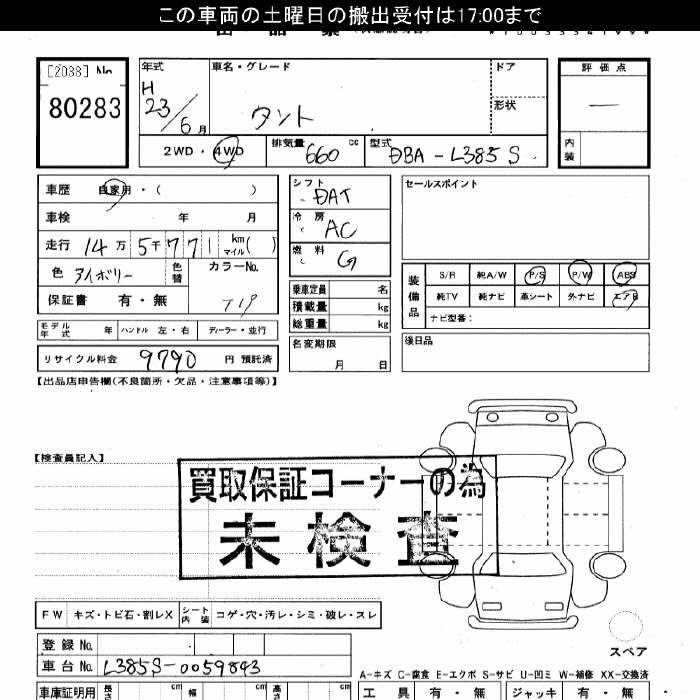 この車両の土曜日の搬出受付は17:00まで
[2038] No
80283
年式 H 23/6月
車名・グレード タント
ドア
形状
評価点 —
内装
2WD・4WD
排気量 660 cc
型式 DBA-L385S
車歴 自家用・( )
車検 年 月
走行 14万5千771 km マイル( )
色 アイボリー 色替 カラーNo. T19
保証書 有・無
シフト DAT
冷房 AC
燃料 G
乗車定員 名
積載量 kg
総重量 kg
名変期限 月 日
セールスポイント
装備品
S/R 純A/W P/S P/W ABS
純TV 純ナビ 革シート 外ナビ エアB
ナビ型番:
後日品
モデル年式 年 ハンドル 左・右 ディーラー・並行
リサイクル料金 9790 円 預託済
【出品店申告欄(不良箇所・欠品・注意事項等)】
【検査員記入】
買取保証コーナーの為
未検査
FW キズ・トビ石・割レX シート内装 コゲ・穴・汚レ・シミ・破レ・スレ
スペア
登録No.
車台No. L385S-0059843
A-キズ C-腐食 E-エクボ S-サビ U-凹ミ W-補修 XX-交換済
車庫証明用 長さ cm 幅 cm 高さ cm
工具 有・無 ジャッキ 有・無